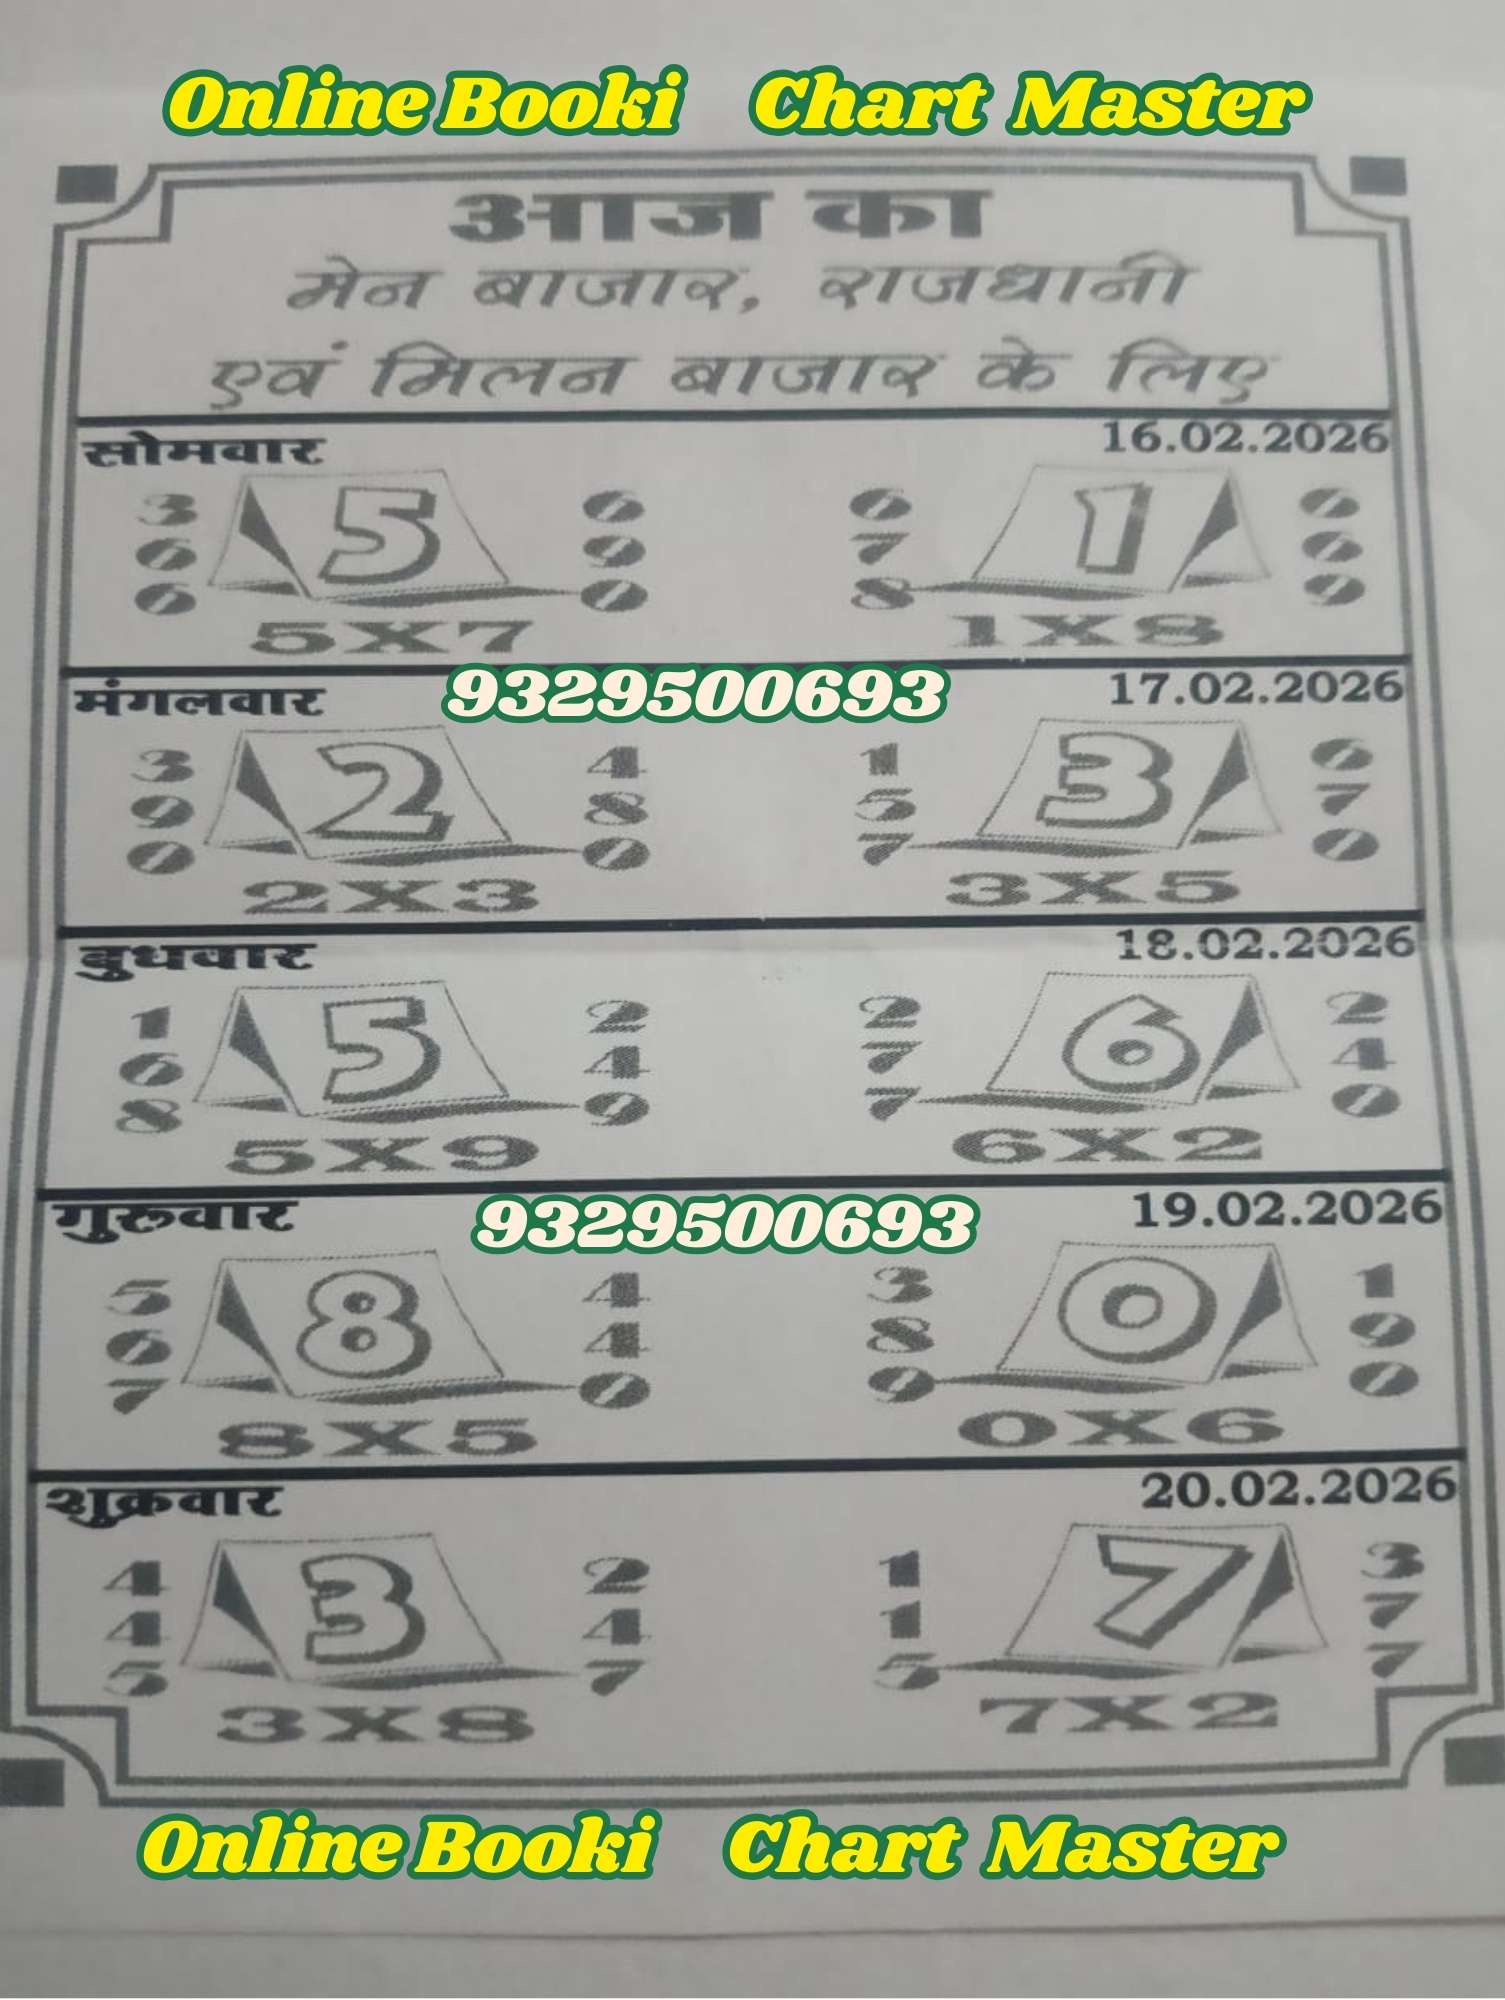 Online Booki Chart Master
आज का
मेन बाजार, राजधानी
एवं मिलन बाजार के लिए
सोमवार 16.02.2026
3 5 6 6 1 6
6 9 7 6
6 0 8 9
5X7 1X8
9329500693
मंगलवार 17.02.2026
3 2 4 1 3 6
9 8 5 7
0 0 7 0
2X3 3X5
बुधवार 18.02.2026
1 5 2 2 6 2
6 4 7 4
8 9 7 0
5X9 6X2
9329500693
गुरुवार 19.02.2026
5 8 4 3 0 1
6 4 8 9
7 0 9 0
8X5 0X6
शुक्रवार 20.02.2026
4 3 2 1 7 3
4 4 1 7
5 7 5 7
3X8 7X2
Online Booki Chart Master